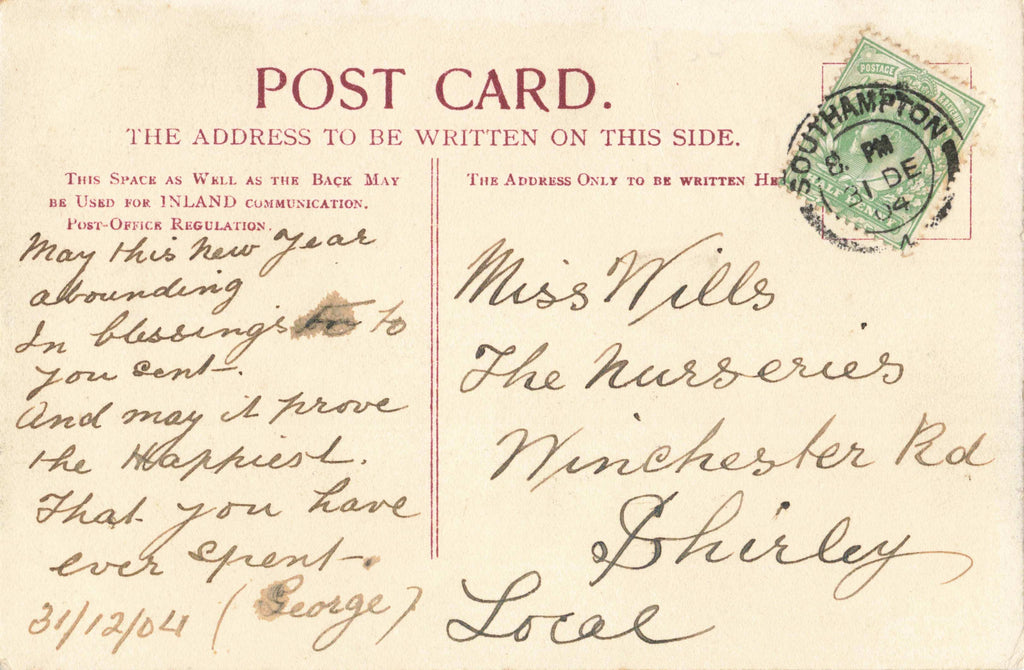 POST CARD.
THE ADDRESS TO BE WRITTEN ON THIS SIDE.
THIS SPACE AS WELL AS THE BACK MAY
BE USED FOR INLAND COMMUNICATION.
POST-OFFICE REGULATION.
May this new year
abounding
In blessings to
you sent.
And may it prove
the Happiest.
That you have
ever spent.
31/12/04 (George)
THE ADDRESS ONLY TO BE WRITTEN
POSTAGE
SOUTHAMPTON
PM
31 DE
04
Miss Wills
The Nurseries
Winchester Rd
Shirley
Local